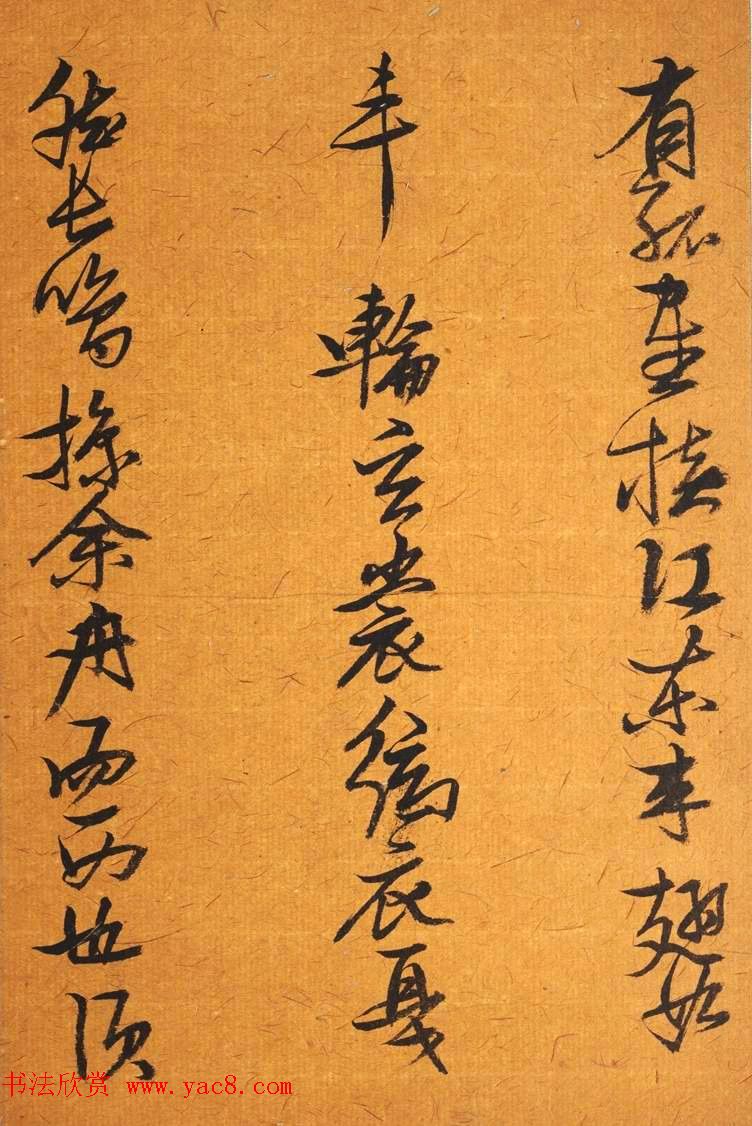 有孤鹤横江东来翅如
车轮玄裳缟衣戛
然长鸣掠余舟而西也须
书法欣赏 www.yac8.com